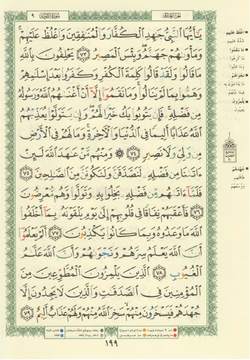 يَٰٓأَيُّهَا ٱلنَّبِيُّ جَٰهِدِ ٱلۡكُفَّارَ وَٱلۡمُنَٰفِقِينَ وَٱغۡلُظۡ عَلَيۡهِمۡۚ
وَمَأۡوَىٰهُمۡ جَهَنَّمُۖ وَبِئۡسَ ٱلۡمَصِيرُ ٧٣ يَحۡلِفُونَ بِٱللَّهِ
مَا قَالُواْ وَلَقَدۡ قَالُواْ كَلِمَةَ ٱلۡكُفۡرِ وَكَفَرُواْ بَعۡدَ إِسۡلَٰمِهِمۡ
وَهَمُّواْ بِمَا لَمۡ يَنَالُواْۚ وَمَا نَقَمُوٓاْ إِلَّآ أَنۡ أَغۡنَىٰهُمُ ٱللَّهُ وَرَسُولُهُۥ
مِن فَضۡلِهِۦۚ فَإِن يَتُوبُواْ يَكُ خَيۡرٗا لَّهُمۡۖ وَإِن يَتَوَلَّوۡاْ يُعَذِّبۡهُمُ
ٱللَّهُ عَذَابًا أَلِيمٗا فِي ٱلدُّنۡيَا وَٱلۡأٓخِرَةِۚ وَمَا لَهُمۡ فِي ٱلۡأَرۡضِ
مِن وَلِيّٖ وَلَا نَصِيرٖ ٧٤ وَمِنۡهُم مَّنۡ عَٰهَدَ ٱللَّهَ لَئِنۡ
ءَاتَىٰنَا مِن فَضۡلِهِۦ لَنَصَّدَّقَنَّ وَلَنَكُونَنَّ مِنَ ٱلصَّٰلِحِينَ ٧٥
فَلَمَّآ ءَاتَىٰهُم مِّن فَضۡلِهِۦ بَخِلُواْ بِهِۦ وَتَوَلَّواْ وَّهُم مُّعۡرِضُونَ ٧٦
فَأَعۡقَبَهُمۡ نِفَاقٗا فِي قُلُوبِهِمۡ إِلَىٰ يَوۡمِ يَلۡقَوۡنَهُۥ بِمَآ أَخۡلَفُواْ
ٱللَّهَ مَا وَعَدُوهُ وَبِمَا كَانُواْ يَكۡذِبُونَ ٧٧ أَلَمۡ يَعۡلَمُوٓاْ
أَنَّ ٱللَّهَ يَعۡلَمُ سِرَّهُمۡ وَنَجۡوَىٰهُمۡ وَأَنَّ ٱللَّهَ عَلَّٰمُ
ٱلۡغُيُوبِ ٧٨ ٱلَّذِينَ يَلۡمِزُونَ ٱلۡمُطَّوِّعِينَ مِنَ
ٱلۡمُؤۡمِنِينَ فِي ٱلصَّدَقَٰتِ وَٱلَّذِينَ لَا يَجِدُونَ إِلَّا
جُهۡدَهُمۡ فَيَسۡخَرُونَ مِنۡهُمۡ سَخِرَ ٱللَّهُ مِنۡهُمۡ وَلَهُمۡ عَذَابٌ أَلِيمٌ ٧٩
١٩٩